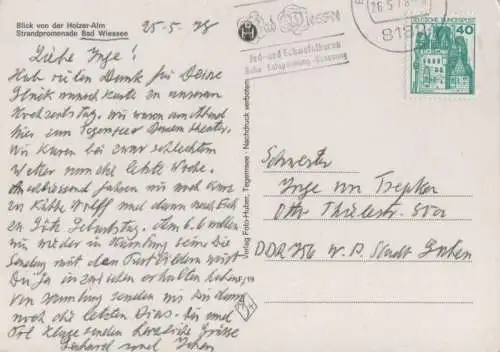 Blick von der Holzer-Alm
Strandpromenade Bad Wiessee
25-5.78
Liebe Inge!
Hab vielen Dank für Deine
Glückwunschkarte zu unserem
Hochzeitstag. Wir waren am Abend
hier im Tegernseer
Wir kuren bei zwar schlechtem
Wetter nun die letzte Woche.
Anschliessend fahren wir noch kurz
zu Käthe Wolff und dann nach
zu Geburtstag. Am 6.6 wollen
wir wieder in Nürnberg sein. Die
Sendung mit den wirst
Du ja inzwischen erhalten haben,
von Nürnberg senden wir Dir dann
noch die letzten Dias. Dir und
Frl. Kluge senden herzliche Grüsse
Gerhard und
Verlag Foto-Huber, Tegernsee · Nachdruck verboten
Bad Wiessee
Jod- und Schwefelkuren
Ruhe Entspannung Genesung
26.5.78
818
DEUTSCHE BUNDESPOST
40
Schwester
Inge von Trepker
Otto Thiele str.
DDR 756 W. P. Stadt Guben